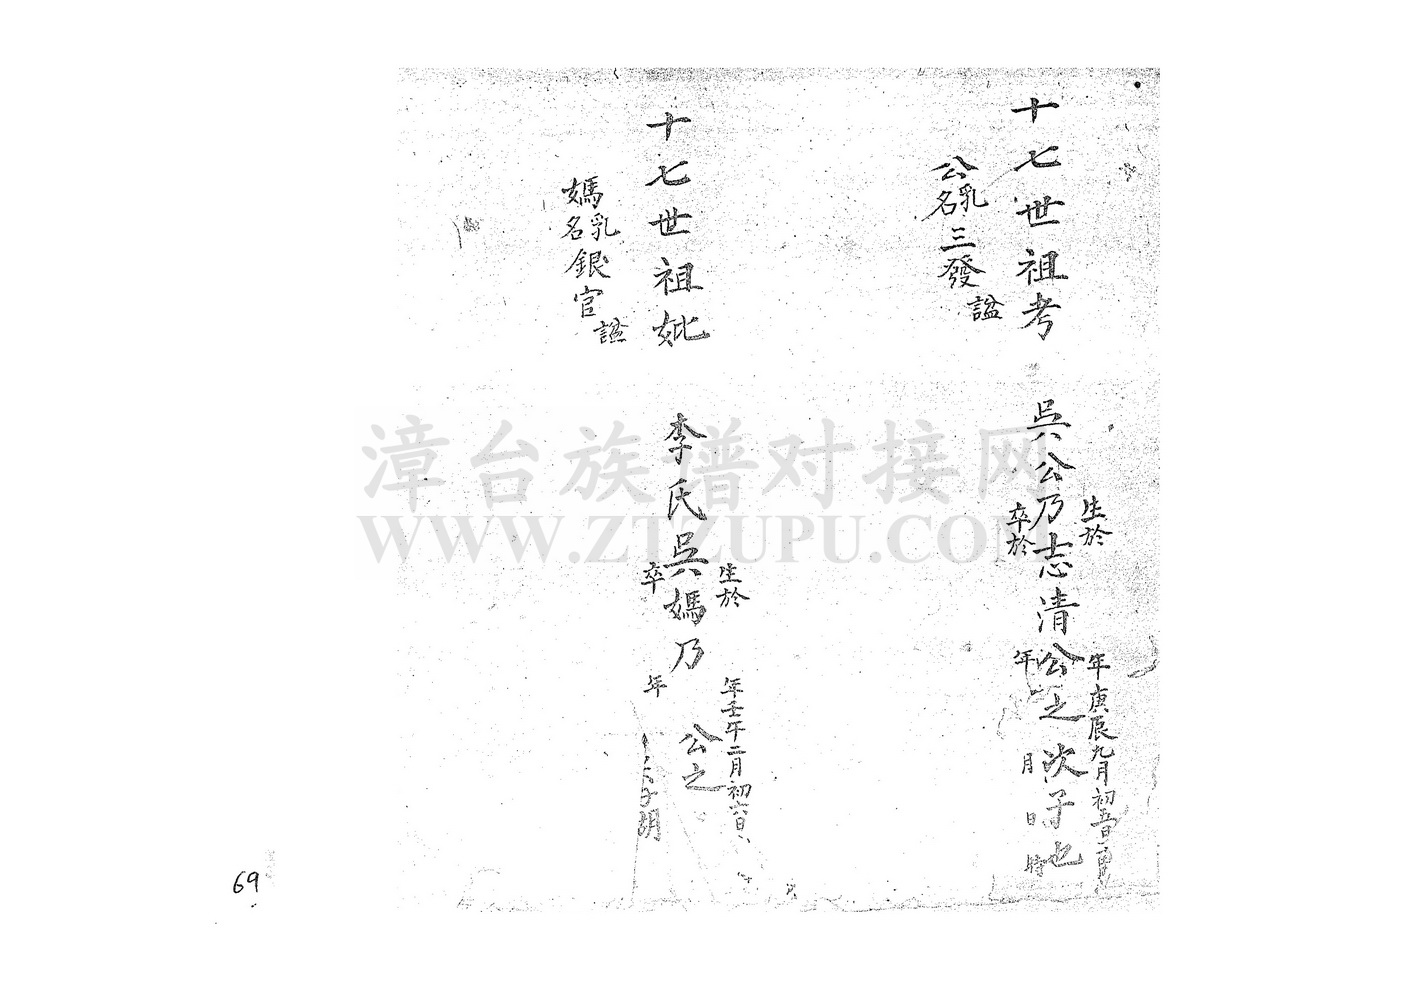 十七世祖考
公乳名三發
諡
吳公乃志清公之次子也
生於
年庚辰九月初五日
卒於
年
月
日
時
十七世祖妣
媽乳名銀官
諡
李氏吳媽乃
公之
生於
年壬午二月初六日
卒
年
漳台族谱对接网
WWW.ZTZUPU.COM
69